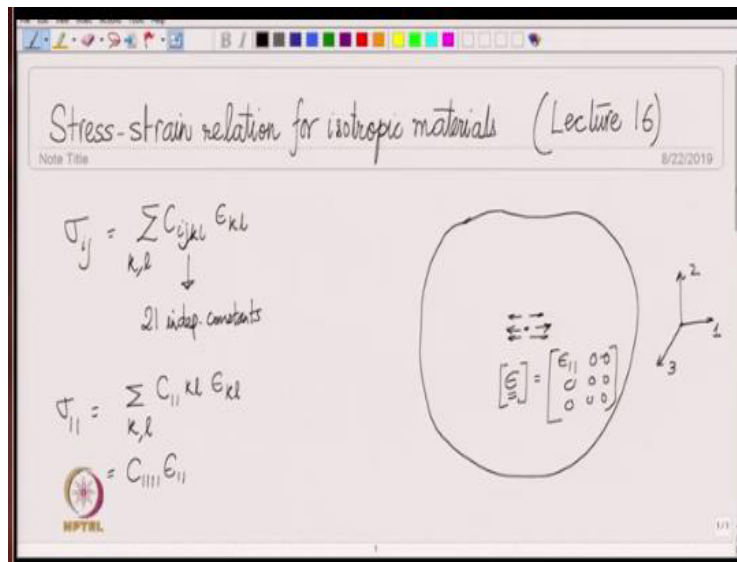 B I
Stress-strain relation for isotropic materials (Lecture 16)
Note Title
8/22/2019
σ_ij = Σ_{k,l} C_ijkl ϵ_kl
↓
21 indep. constants
σ_11 = Σ_{k,l} C_11kl ϵ_kl
= C_1111 ϵ_11
[ϵ] = [ϵ_11 0 0
0 0 0
0 0 0]
2
1
3
NPTEL
1/1
1